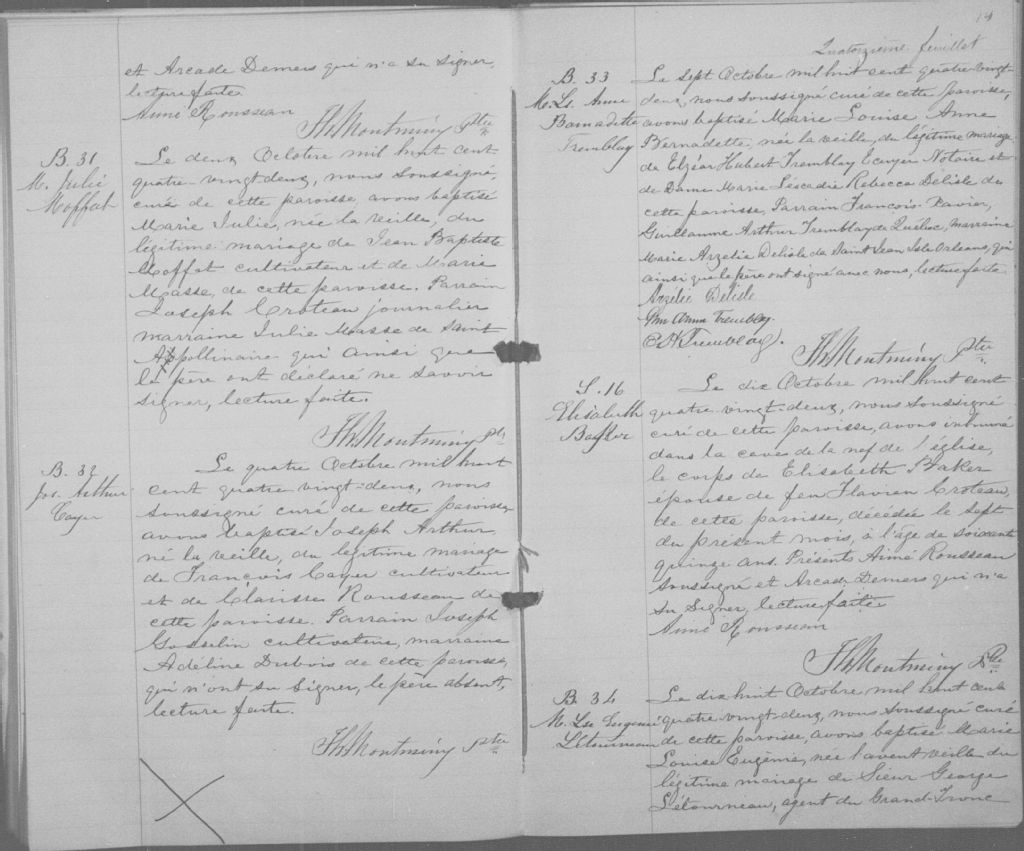 et Arcade Demers qui n'a su signer,
lecture faite
Aimé Rousseau
Th. Montminy Ptre
B. 31
M. Julie
Moffat
Le deux Octobre mil huit cent
quatre-vingt deux, nous soussigné,
curé de cette paroisse, avons baptisé
Marie Julie, née la veille, du
légitime mariage de Jean Baptiste
Moffat cultivateur et de Marie
Masse, de cette paroisse. Parrain
Joseph Croteau journalier
marraine Julie Masse de Saint
Appollinaire qui ainsi que
le père ont déclaré ne savoir
signer, lecture faite.
Th. Montminy Ptre
B. 32
Jos. Arthur
Cayer
Le quatre Octobre mil huit
cent quatre vingt-deux, nous
soussigné curé de cette paroisse
avons baptisé Joseph Arthur
né la veille, du légitime mariage
de François Cayer cultivateur
et de Clarisse Rousseau de
cette paroisse. Parrain Joseph
Gosselin cultivateur, marraine
Adéline Dubois de cette paroisse,
qui n'ont su signer, le père absent,
lecture faite.
Th. Montminy Ptre
14
Quatorzième feuillet
B. 33
M. Ls. Anne
Bernadette
Tremblay
Le sept Octobre mil huit cent quatre vingt-
deux, nous soussigné curé de cette paroisse,
avons baptisé Marie Louise Anne
Bernadette, née la veille, du légitime mariage
de Elzéar Hubert Tremblay Ecuyer Notaire et
de Dame Marie Léocadie Rebecca Délisle de
cette paroisse, Parrain François Xavier,
Guillaume Arthur Tremblay de Québec, marraine
Marie Arzelie Delisle de Saint Jean Isle Orleans, qui
ainsi que le père ont signé avec nous, lecture faite
Arzélie Delisle
Arthur Tremblay.
E H Tremblay.
Th. Montminy Ptre
S. 16
Elisabeth
Baker
Le dix Octobre mil huit cent
quatre-vingt-deux, nous soussigné
curé de cette paroisse, avons inhumé
dans la cave de la nef de l'église,
le corps de Elisabeth Baker
épouse de feu Flavien Croteau,
de cette paroisse, décédée le sept
du présent mois, à l'âge de soixante
quinze ans. Présents Aimé Rousseau
soussigné et Arcade Demers qui n'a
su signer, lecture faite
Aimé Rousseau
Th. Montminy Ptre
B. 34
M. Lse Eugénie
Létourneau
Le dix huit Octobre mil huit cent
quatre vingt-deux, nous soussigné curé
de cette paroisse, avons baptisé Marie
Louise Eugénie, née l'avant veille du
légitime mariage de Sieur George
Létourneau, agent du Grand-Tronc